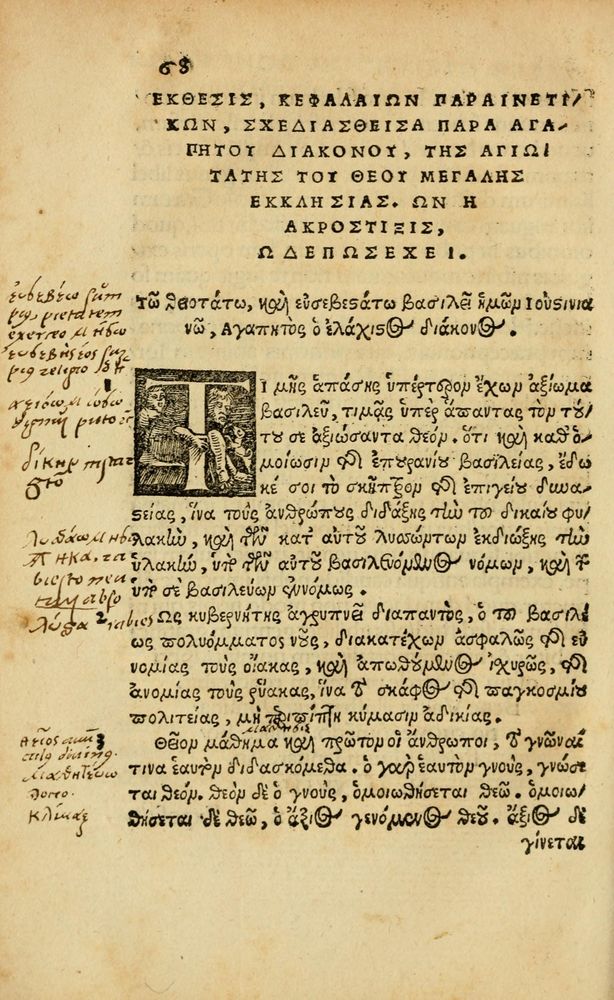 68
ΕΚΘΕΣΙΣ, ΚΕΦΑΛΑΙΩΝ ΠΑΡΑΙΝΕΤΙ
ΚΩΝ, ΣΧΕΔΙΑΣΘΕΙΣΑ ΠΑΡΑ ΑΓΑ
ΠΗΤΟΥ ΔΙΑΚΟΝΟΥ, ΤΗΣ ΑΓΙΩ
ΤΑΤΗΣ ΤΟΥ ΘΕΟΥ ΜΕΓΑΛΗΣ
ΕΚΚΛΗΣΙΑΣ. ΩΝ Η
ΑΚΡΟΣΤΙΞΙΣ,
ΩΔΕΠΩΣΕΧΕΙ.
Τῶ θειοτάτω, καὶ εὐσεβεστάτω βασιλεῖ ἡμῶν Ιουστινια
νῶ, Αγαπητὸς ὁ ἐλάχιστος διάκονος.
ΤΙμῆς ἁπάσης ὑπέρτερον ἔχων ἀξίωμα
βασιλεῦ, τιμᾶς ὑπὲρ ἅπαντας τὸν τού
του σε ἀξιώσαντα θεόν. ὅτι καὶ καθ ὁ
μοίωσιν τῆς ἐπουρανίου βασιλείας, ἔδω
κέ σοι τὸ σκῆπτρον τῆς ἐπιγείου δυνα
στείας, ἵνα τοὺς ἀνθρώπους διδάξης τὴν τοῦ δικαίου φυ
λακὴν, καὶ τῶν κατ αὐτοῦ λυσσώντων ἐκδιώξης τὴν
ὑλακὴν, ὑπὸ τῶν αὐτοῦ βασιλευόμενος νόμων, καὶ τῶν
ὑπὸ σὲ βασιλεύων ἐννόμως.
Ως κυβερνήτης ἀγρυπνεῖ διαπαντὸς, ὁ τοῦ βασιλέ
ως πολυόμματος νοῦς, διακατέχων ἀσφαλῶς τῆς εὐ
νομίας τοὺς οἴακας, καὶ ἀπωθούμενος ἰσχυρῶς, τῆς
ἀνομίας τοὺς ῥύακας, ἵνα τὸ σκάφος τῆς παγκοσμίου
πολιτείας, μὴ περιπίπτη κύμασιν ἀδικίας.
Θεῖον μάθημα καὶ πρῶτον οἱ ἄνθρωποι, τὸ γνῶναί
τινα ἑαυτὸν διδασκόμεθα. ὁ γὰρ ἑαυτὸν γνοὺς, γνώσε
ται θεόν. θεὸν δὲ ὁ γνοὺς, ὁμοιωθήσεται θεῶ. ὁμοιω
θήσεται δὲ θεῶ, ὁ ἄξιος γενόμενος θεοῦ. ἄξιος δὲ
γίνεται